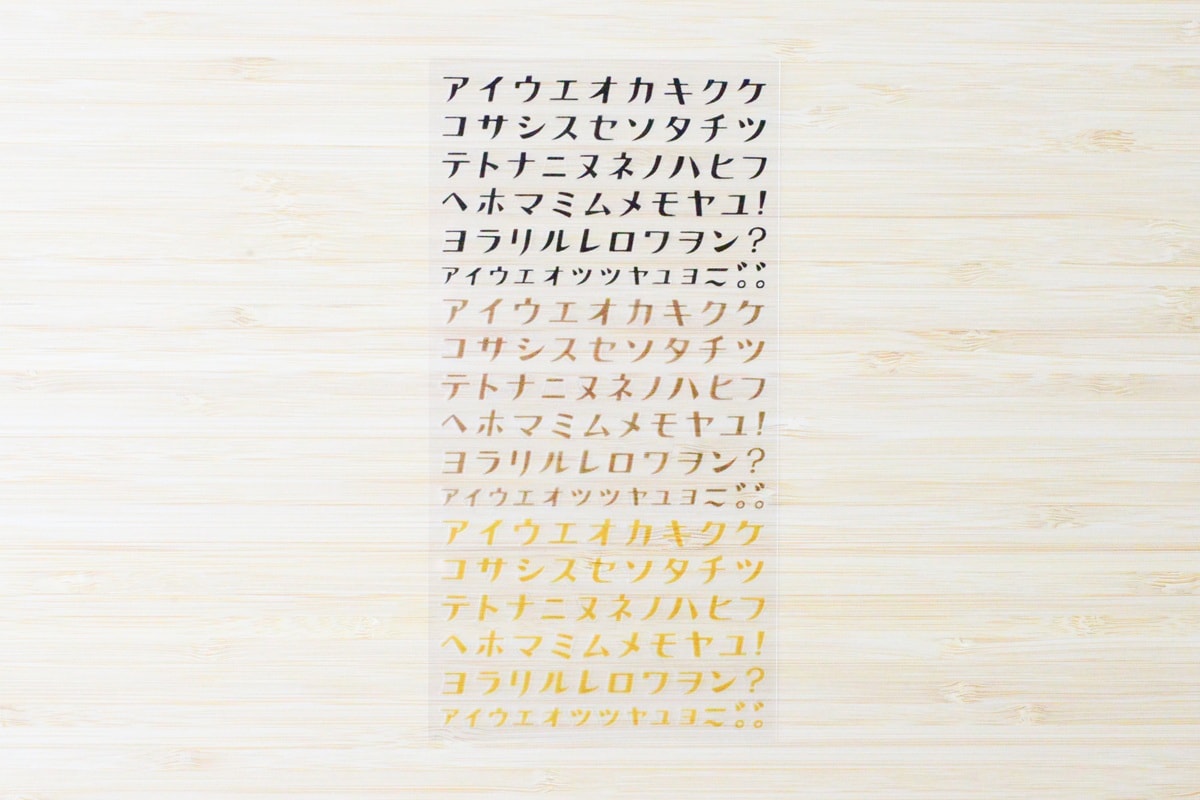 アイウエオカキクケ
コサシスセソタチツ
テトナニヌネノハヒフ
ヘホマミムメモヤユ!
ヨラリルレロワヲン?
アイウエオツツヤユヨー~゛゛゜゜
アイウエオカキクケ
コサシスセソタチツ
テトナニヌネノハヒフ
ヘホマミムメモヤユ!
ヨラリルレロワヲン?
アイウエオツツヤユヨー~゛゛゜゜
アイウエオカキクケ
コサシスセソタチツ
テトナニヌネノハヒフ
ヘホマミムメモヤユ!
ヨラリルレロワヲン?
アイウエオツツヤユヨー~゛゛゜゜